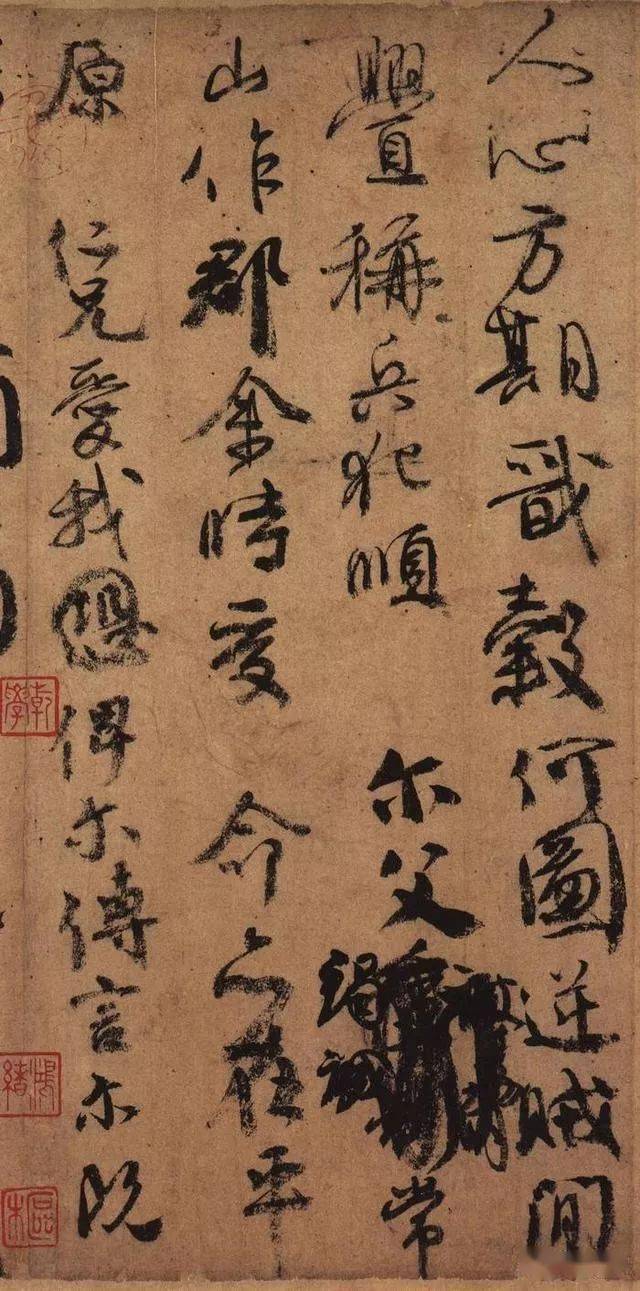 人心方期戩穀何圖逆賊閒
釁稱兵犯順 尒父竭誠常
山作郡余時受 命亦在平
原 仁兄愛我俾尒傳言尒既
乾學
鴻緒